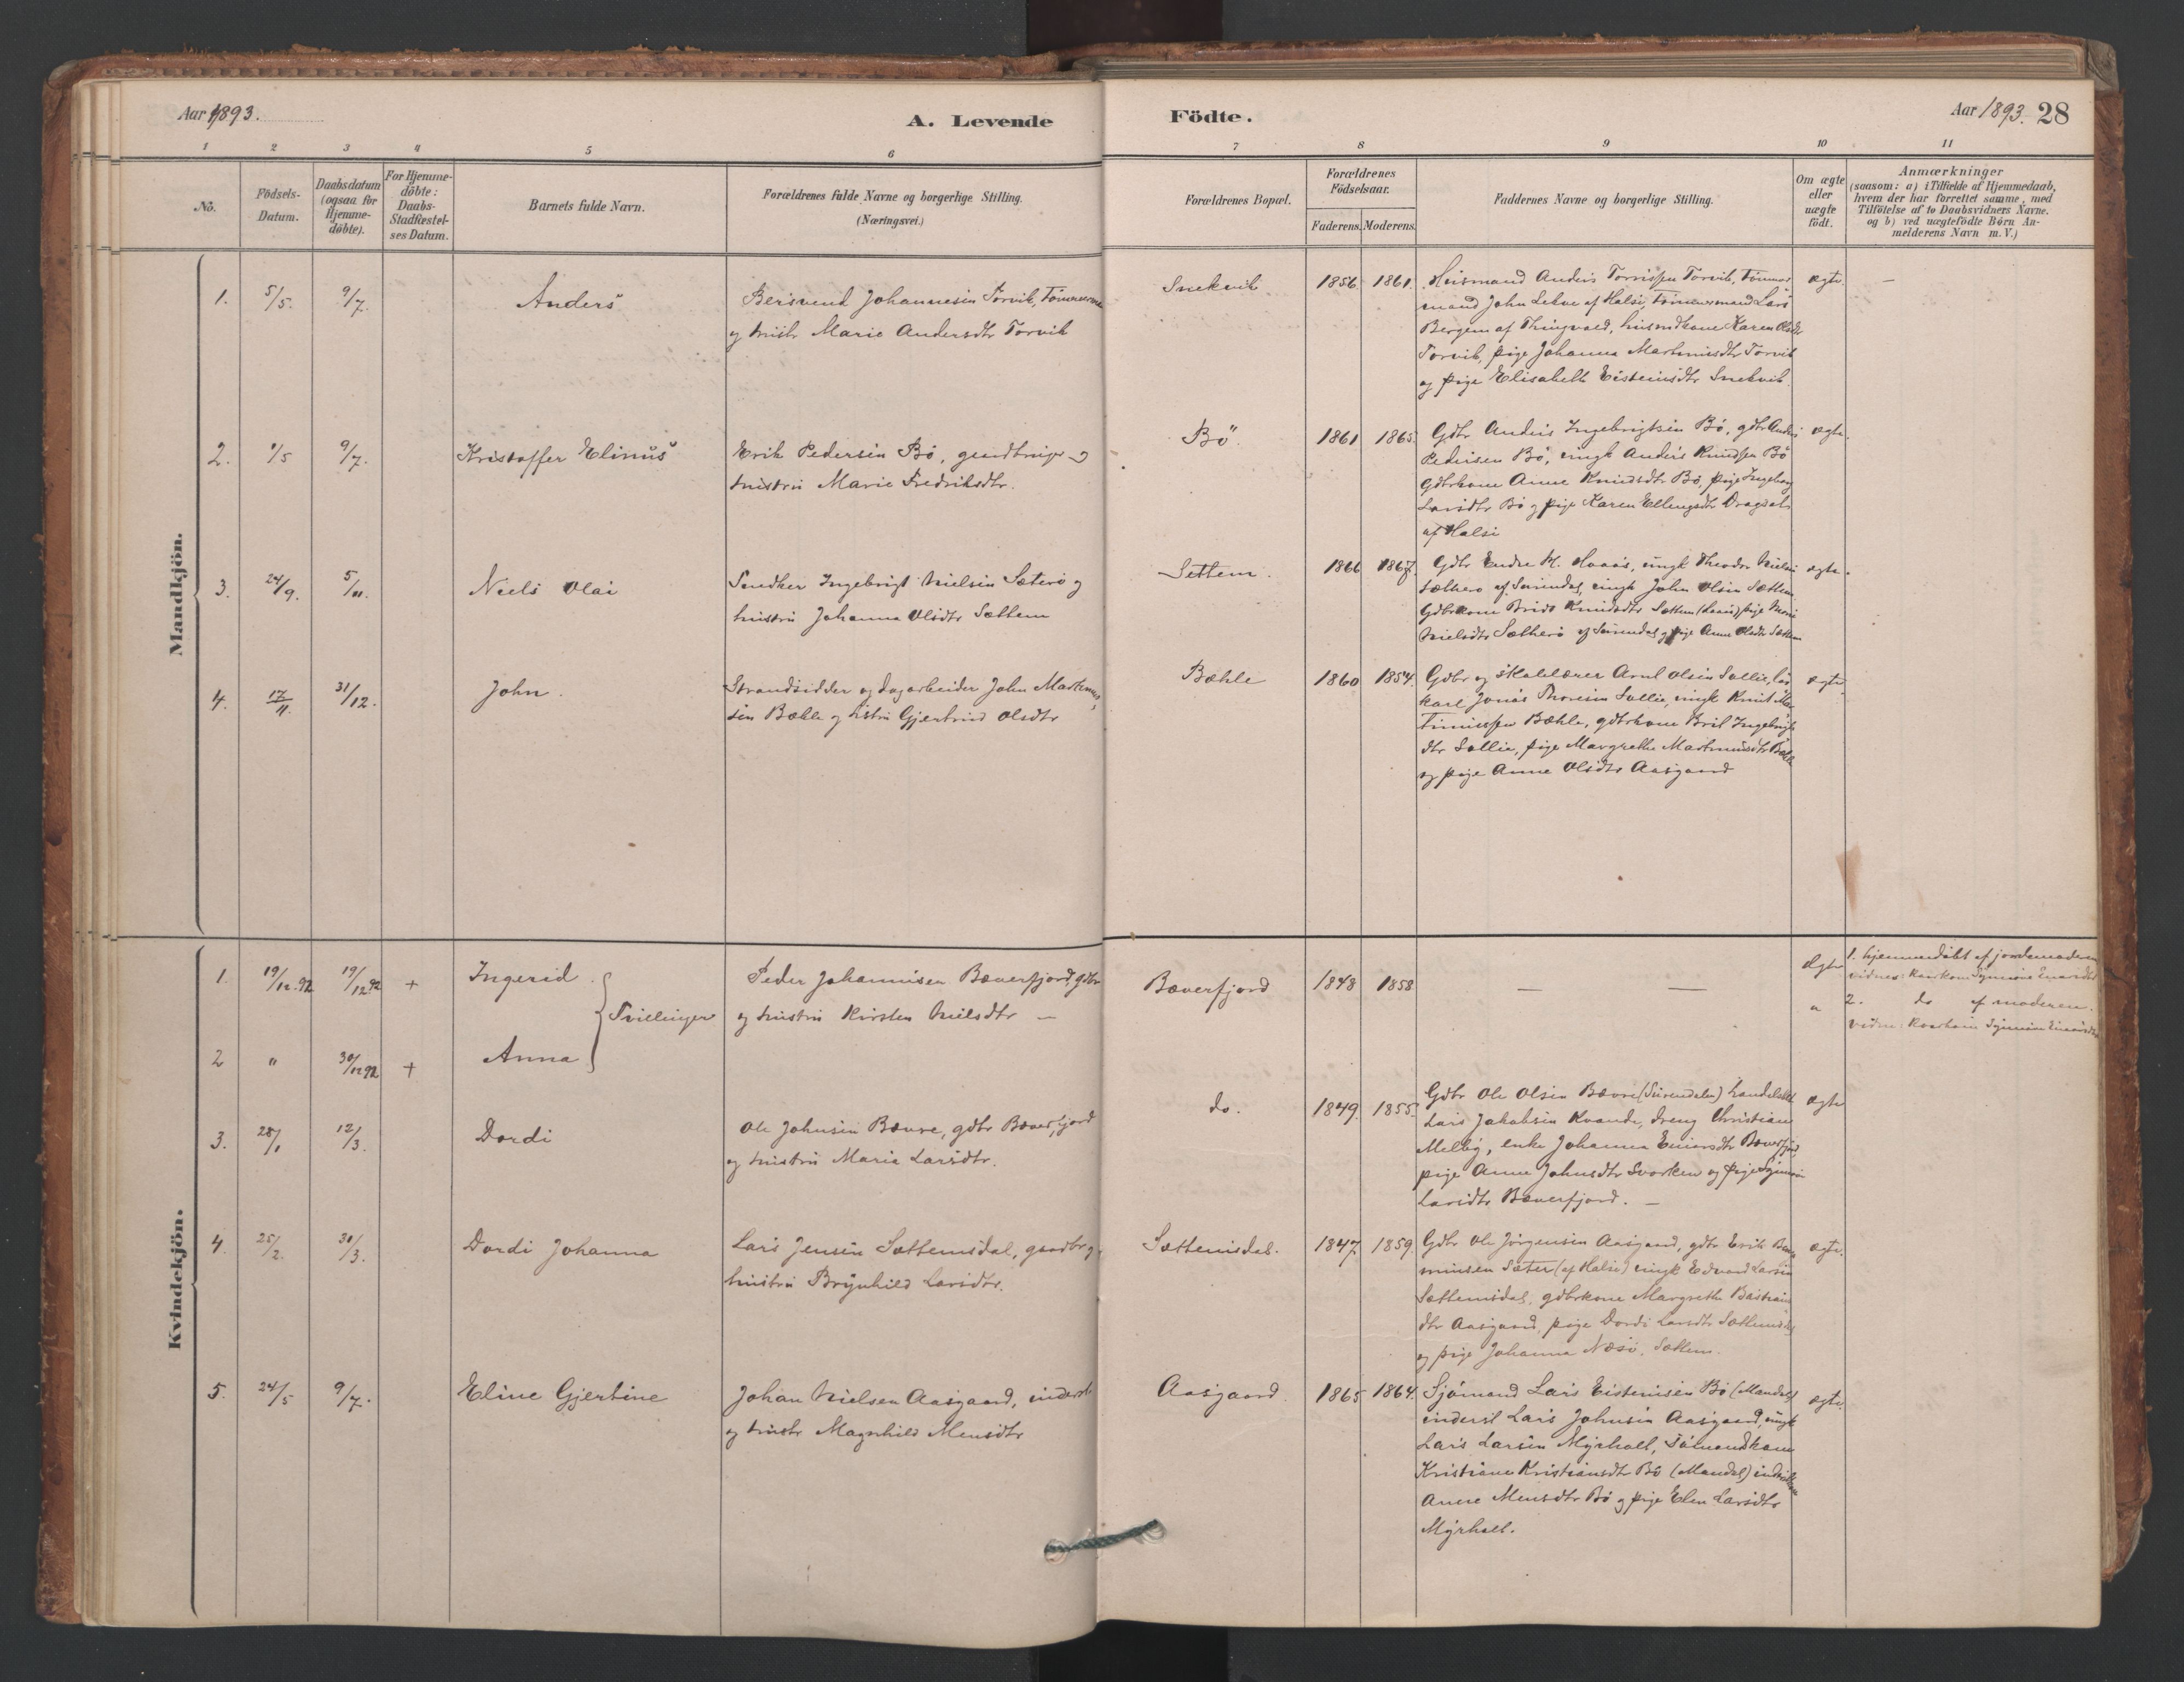 Aar 1893.
A. Levende
Födte.
Aar 1893. 28
1 2 3 4 5 6 7 8 9 10 11
No.
Födsels-
Datum.
Daabsdatum
(ogsaa for
Hjemme-
döbte).
For Hjemme-
döbte:
Daabs-
Stadfæstel-
ses Datum.
Barnets fulde Navn.
Forældrenes fulde Navne og borgerlige Stilling.
(Næringsvei.)
Forældrenes Bopæl.
Forældrenes
Födselsaar.
Faderens. Moderens.
Faddernes Navne og borgerlige Stilling.
Om ægte
eller
uægte
födt.
Anmærkninger
(saasom: a) i Tilfælde af Hjemmedaab,
hvem der har forrettet samme, med
Tilföielse af to Daabsvidners Navne.
og b) ved uægtefödte Börn An-
melderens Navn m. V.)
Mandkjön.
1. 5/5. 9/7. Anders
Bersvend Johannesen Torvik,
og hustr Marie Andersdtr Torvik
Snekvik 1856 1861.
Husmand Anders Torrissen Torvik,
mand John Lerve af Halse, Tömmermand Lars
Bergem af Thingvold, husmdkone Karen
Torvik, pige Johanna Martinusdtr Torvik
og pige Elisabeth Eistensdtr Snekvik.
ægte. —
2. /5 9/7. Kristoffer Elinus
Erik Pedersen Bö,
hustru Marie Fredriksdtr.
Bö. 1861 1865.
Gdbr Anders Ingebrigtsen Bö, gdbr Anders
Pedersen Bö, ungk Anders Knudsen Bö
Gdbrkone Anne Knudsdtr Bö, pige Ingeborg
Larsdtr Bö og pige Karen Ellingsdtr
af Halse
ægte.
3. 24/9. 5/11. Niels Olai
Snedker Ingebrigt Nielsen Sæterö og
hustru Johanna Olsdtr Sættem
Settem. 1866 1867.
Gdbr Endre K. Honaas, ungk Theodor Nielsen
Sætherö af Surendal, ungk John Olsen Sættem
Gdbrkone Brit Knudsdtr Sættem pige
Nielsdtr Sætherö af Surendal og pige Anne Olsdtr Sættem
ægte.
4. 17/11. 31/12. John.
Strandsidder og dagarbeider John Martinus-
sen Bæhle og hstru Gjertrud Olsdtr
Bæhle 1860 1854.
Gdbr og skolelærer Arnt Olsen Sollie,
karl Jonas Thoresen Sollie, ungk Knut Mar-
tinussen Bæhle, gdbrkone Brit Ingebrigts-
dtr Sollie, pige Margrethe Martinusdtr Bæhle
og pige Anne Olsdtr Aasgaard
ægte.
Kvindekjön.
1. 19/12.92 19/12.92 + Ingerid
Tvillinger
Peder Johannesen Bæverfjord, gdbr
og hustru Kirsten Nielsdtr —
Bæverfjord 1848 1858
— —
ægte
1. hjemmedöbt af jordemoderen
2 " 30/12 92 + Anna
"
2. do af moderen.
3. 28/1 12/3. Dordi
Ole Johnsen Bævre, gdbr Bæverfjord
og hustru Marie Larsdtr.
do. 1849. 1855.
Gdbr Ole Olsen Bævre (Surendalen)
Lars Jakobsen Kvande, dreng Christian
Melby, enke Johanna Einarsdtr Bæverfjord,
pige Anne Johnsdtr Svorken og pige
Larsdtr Bæverfjord. —
ægte
4. 25/2. 30/3. Dordi Johanna
Lars Jensen Sættemsdal, gaardbr og
hustru Brynhild Larsdtr.
Sættemsdal. 1847 1859.
Gdbr Ole Jörgensen Aasgaard, gdbr Erik
Sæter (af Halse) ungk Edvard Larsen
Sættemsdal, gdbrkone Margrethe Bastian-
dtr Aasgaard, pige Dordi Larsdtr Sættemsdal
og pige Johanna Næsö, Sættem.
ægte.
5. 24/5 9/7. Eline Gjertine
Johan Nielsen Aasgaard, inderst
og hustr Magnhild Monsdtr
Aasgaard 1865 1864.
Sjömand Lars Eistensen Bö (Mandal)
inderst Lars Johnsen Aasgaard, ungk
Lars Larsen Myrholt, Sömandkone
Kristiane Kristiansdtr Bö (Mandal)
Anne Monsdtr Bö og pige Elen Larsdtr
Myrholt.
ægte.